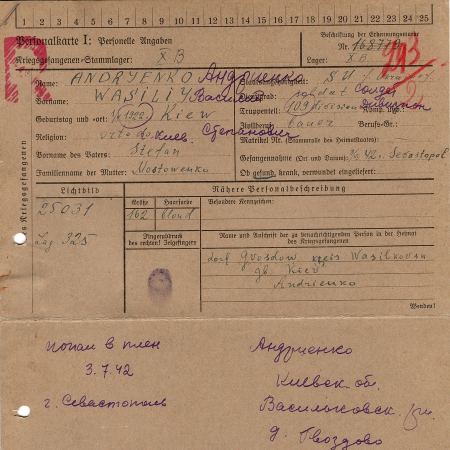 1 2 3 4 5 6 7 8 9 10 11 12 13 14 15 16 17 18 19 20 21 22 23 24 25
Personalkarte I: Personelle Angaben
Beschriftung der Erkennungsmarke
Kriegsgefangenen-Stammlager: XB
Nr. 168773
Lager: XB
Name: ANDRYENKO Андриенко
Staatsangehörigkeit: SU
Vorname: WASILIY Василий
soldat Солдат
Geburtstag und -ort: 1922 Kiew
Truppenteil: 109 division Дивизион
Religion: ortodo Киев Степанович
Zivilberuf: bauer Berufs-Gr.:
Matrikel Nr. (Stammrolle des Heimatstaates)
Vorname des Vaters: Stefan
Gefangennahme (Ort und Datum): 3/7 42. Sebastopol
Familienname der Mutter: Mostowenko
Ob gesund, krank, verwundet eingeliefert:
Lichtbild
Nähere Personalbeschreibung
Größe Haarfarbe Besondere Kennzeichen:
25031
162 blond
Lag 325
Fingerabdruck
des rechten! Zeigefingers
Name und Anschrift der zu benachrichtigenden Person in der Heimat
des Kriegsgefangenen
dorf Gwosdow kreis Wasilkowan
gb. Kiev
Andrienko
Wenden!
попал в плен
3.7.42
г. Севастополь
Андриенко
Киевск об.
Васильковск.
д. Гвоздово